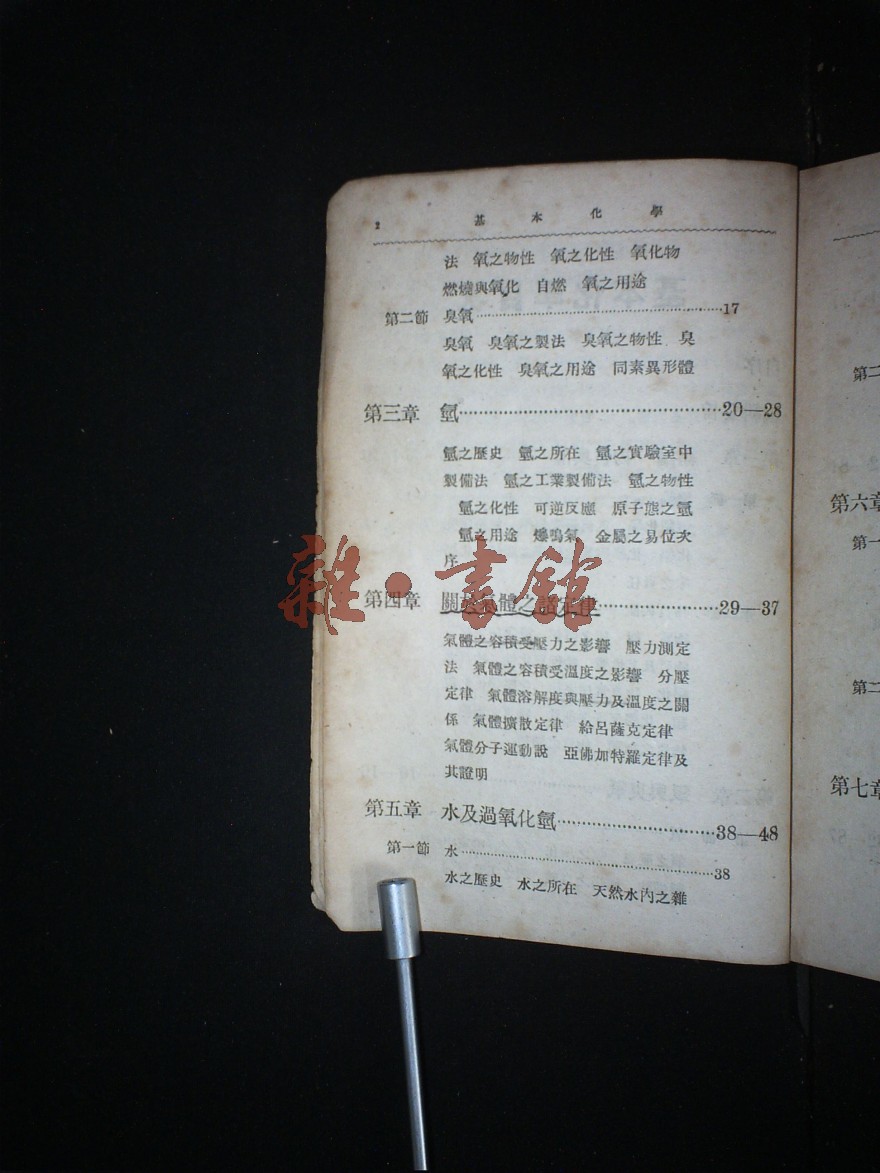 2 基本化學
法 氧之物性 氧之化性 氧化物
燃燒與氧化 自燃 氧之用途
第二節 臭氧……17
臭氧 臭氧之製法 臭氧之物性 臭
氧之化性 臭氧之用途 同素異形體
第三章 氫……20—28
氫之歷史 氫之所在 氫之實驗室中
製備法 氫之工業製備法 氫之物性
氫之化性 可逆反應 原子態之氫
氫之用途 爆鳴氣 金屬之易位次
序
第四章 關於氣體之諸定律……29—37
氣體之容積受壓力之影響 壓力測定
法 氣體之容積受溫度之影響 分壓
定律 氣體溶解度與壓力及溫度之關
係 氣體擴散定律 給呂薩克定律
氣體分子運動說 亞佛加特羅定律及
其證明
第五章 水及過氧化氫……38—48
第一節 水……38
水之歷史 水之所在 天然水內之雜
雜·書館
第二
第六章
第一
第二
第七章